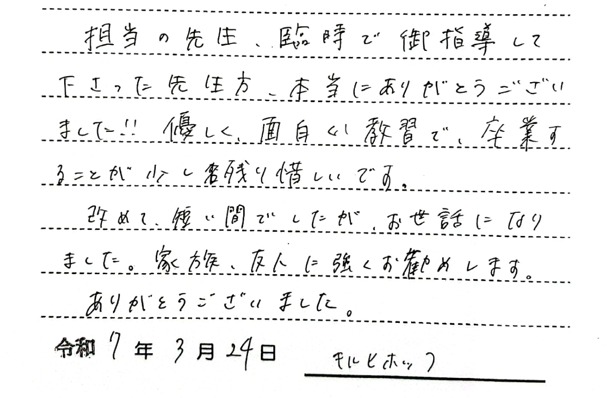 担当の先生、臨時で御指導して
下さった先生方、本当にありがとうござい
ました!! 優しく、面白い教習で、卒業す
ることが少し名残り惜しいです。
改めて、短い間でしたが、お世話になり
ました。家族、友人に強くお勧めします。
ありがとうございました。
令和7年3月24日 モルヒホッフ